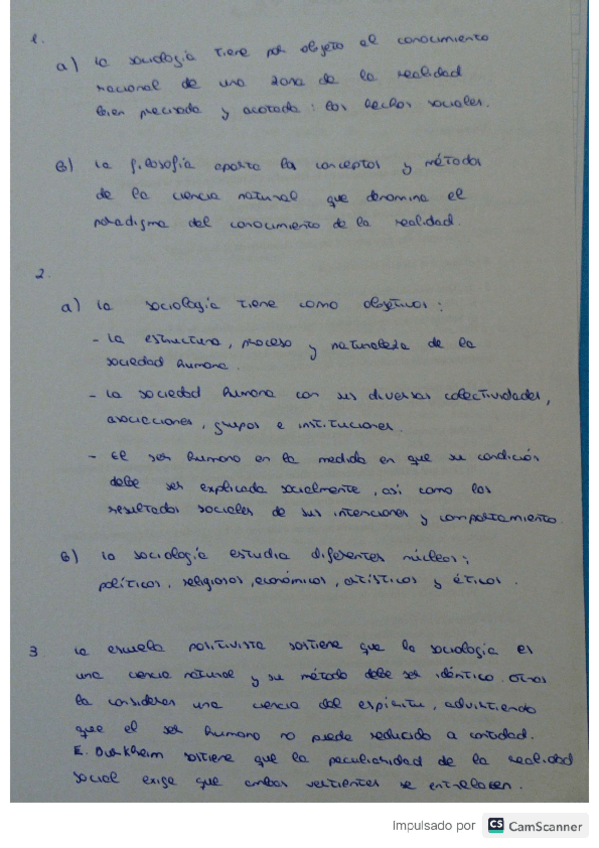 1.
a) La sociología tiene por objeto el conocimiento
racional de una zona de la realidad
bien precisada y acotada: los hechos sociales.
B) La filosofía aporta los conceptos y métodos
de la ciencia natural que denomina el
paradigma del conocimiento de la realidad.
2.
a) La sociología tiene como objetivos:
- La estructura, proceso y naturaleza de la
sociedad humana.
- La sociedad humana con sus diversas colectividades,
asociaciones, grupos e instituciones.
- El ser humano en la medida en que su condición
debe ser explicada socialmente, así como los
resultados sociales de sus intenciones y comportamiento.
B) La sociología estudia diferentes núcleos;
políticos, religiosos, económicos, artísticos y éticos.
3 La escuela positivista sostiene que la sociología es
una ciencia natural y su método debe ser idéntico. Otros
la consideran una ciencia del espíritu, advirtiendo
que el ser humano no puede reducido a cantidad.
E. Durkheim sostiene que la peculiaridad de la realidad
social exige que ambas vertientes se entrelacen.
Impulsado por CS CamScanner